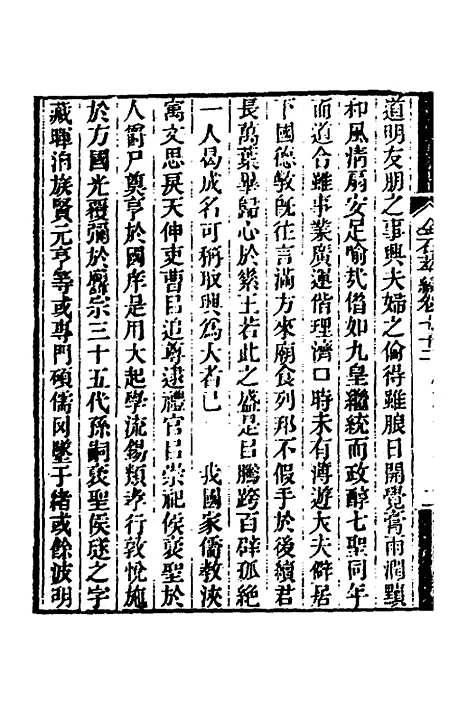 道明友朋之事興夫婦之倫得雖朖日開覺膏雨潤黷
和風清扇安足喻㢤僣如九皇繼統而政醇七聖同年
而道合雖事業廣運偕理濟口時未有博遊大夫僻居
下國德敎旣往言滿方來廟食列邦不假手於後續君
長萬葉畢歸心於素王若此之盛是㠯騰跨百辟孤絶
一人曷成名可稱取興為大者已 我國家儒敎浹
寓文思戾天伸吏曹㠯追尊逮禮官㠯崇祀侯褒聖於
人爵尸奠享於國庠是用大起學流錫類孝行敦悅施
於方國光覆彌於廟宗三十五代孫嗣褒聖侯璲之字
藏暉洎族賢元亨等或專門碩儒罔墜于緒或餘波明
金石萃編卷七十二
二